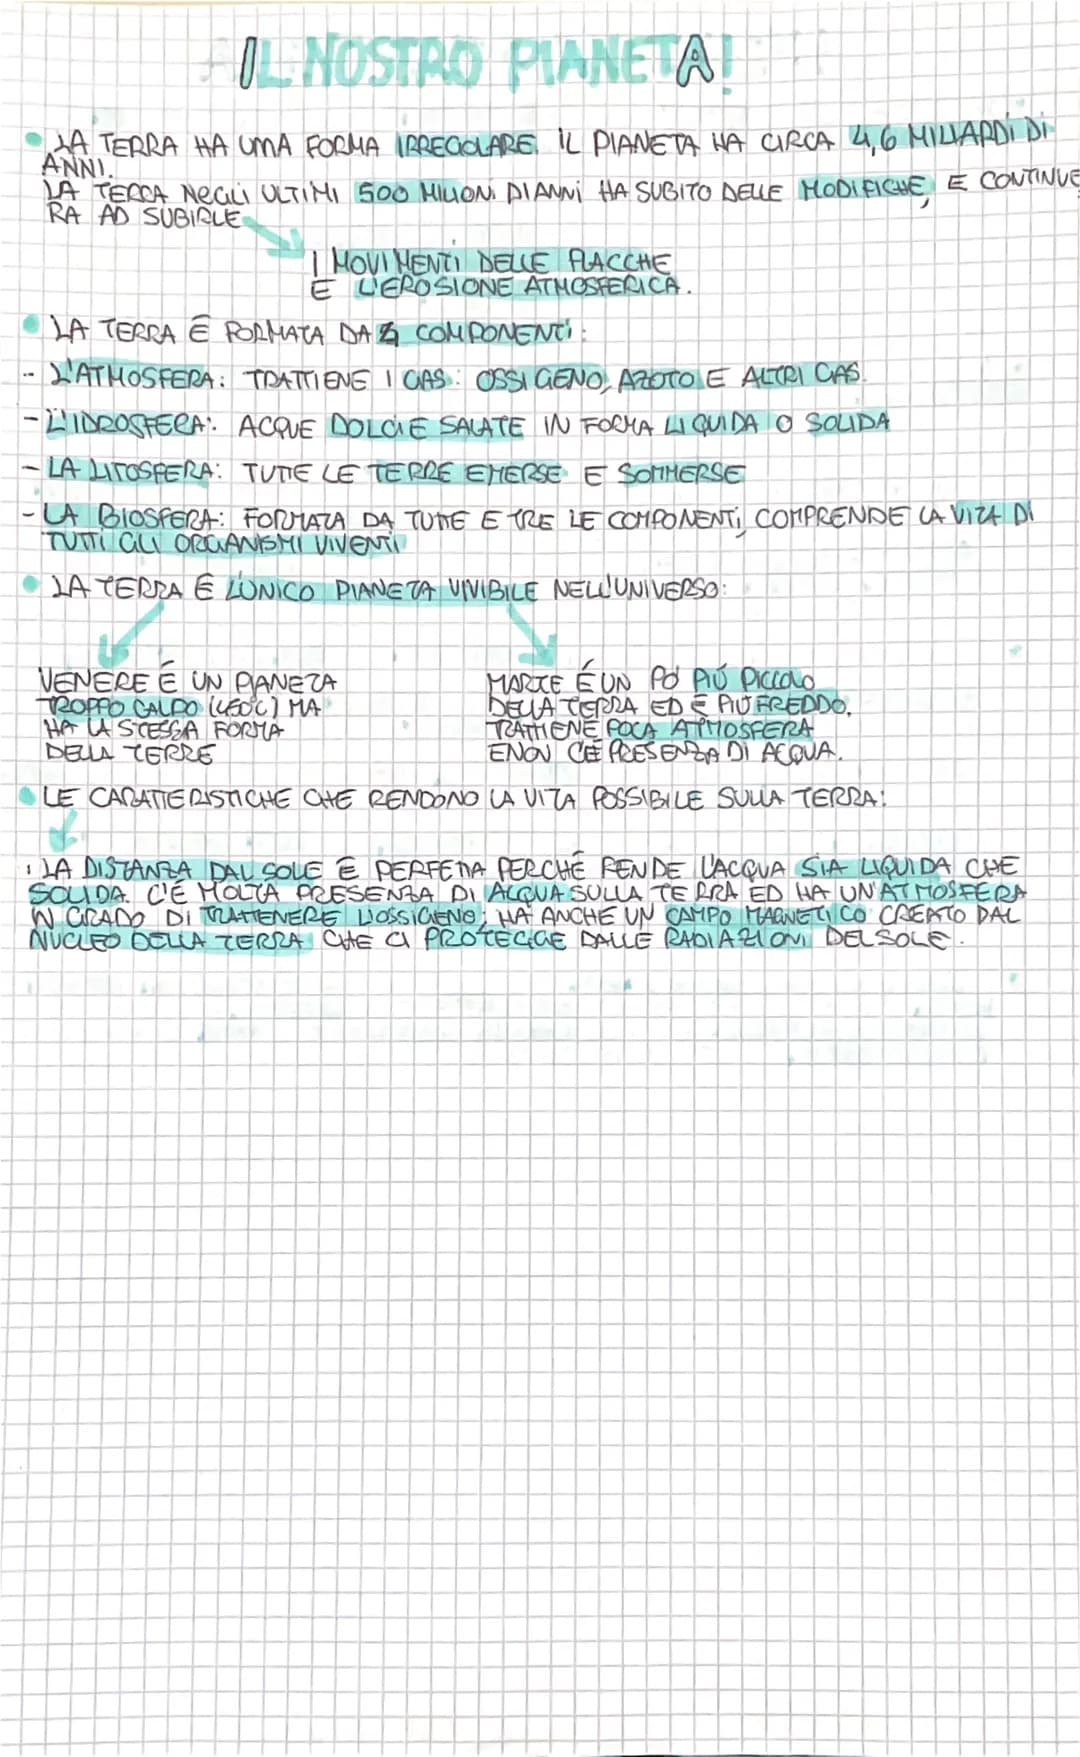 IL NOSTRO PIANETA!
LA TERRA HA UNA FORMA IRREGOLARE. IL PIANETA HA CIRCA 4,6 MILIARDI DI
ANNI.
LA TERRA NEGLI ULTIMI 500 MILIONI DI ANNI HA SUBITO DELLE MODIFICHE, E CONTINUE
RA AD SUBIRLE
I MOVIMENTI DELLE PLACCHE
E L'EROSIONE ATMOSFERICA.
LA TERRA É FORMATA DA 4 COMPONENTI:
- L'ATMOSFERA: TRATTIENE I GAS: OSSIGENO, AZOTO E ALTRI GAS.
- L'IDROSFERA: ACQUE DOLCI E SALATE IN FORMA LIQUIDA O SOLIDA
- LA LITOSFERA: TUTTE LE TERRE EMERSE E SOMMERSE
- LA BIOSFERA: FORMATA DA TUTTE E TRE LE COMPONENTI, COMPRENDE LA VITA DI
TUTTI GLI ORGANISMI VIVENTI
LA TERRA É L'UNICO PIANETA VIVIBILE NELL'UNIVERSO:
VENERE É UN PIANETA
TROPPO CALDO (460°C) MA
HA LA STESSA FORMA
DELLA TERRE
MARTE É UN PO' PIÚ PICCOLO
DELLA TERRA ED É PIÚ FREDDO,
TRATTIENE POCA ATMOSFERA
E NON C'É PRESENZA DI ACQUA.
LE CARATTERISTICHE CHE RENDONO LA VITA POSSIBILE SULLA TERRA:
LA DISTANZA DAL SOLE É PERFETTA PERCHÉ RENDE L'ACQUA SIA LIQUIDA CHE
SOLIDA. C'É MOLTA PRESENZA DI ACQUA SULLA TERRA ED HA UN'ATMOSFERA
IN GRADO DI TRATTENERE L'OSSIGENO; HA ANCHE UN CAMPO MAGNETICO CREATO DAL
NUCLEO DELLA TERRA CHE CI PROTEGGE DALLE RADIAZIONI DEL SOLE.